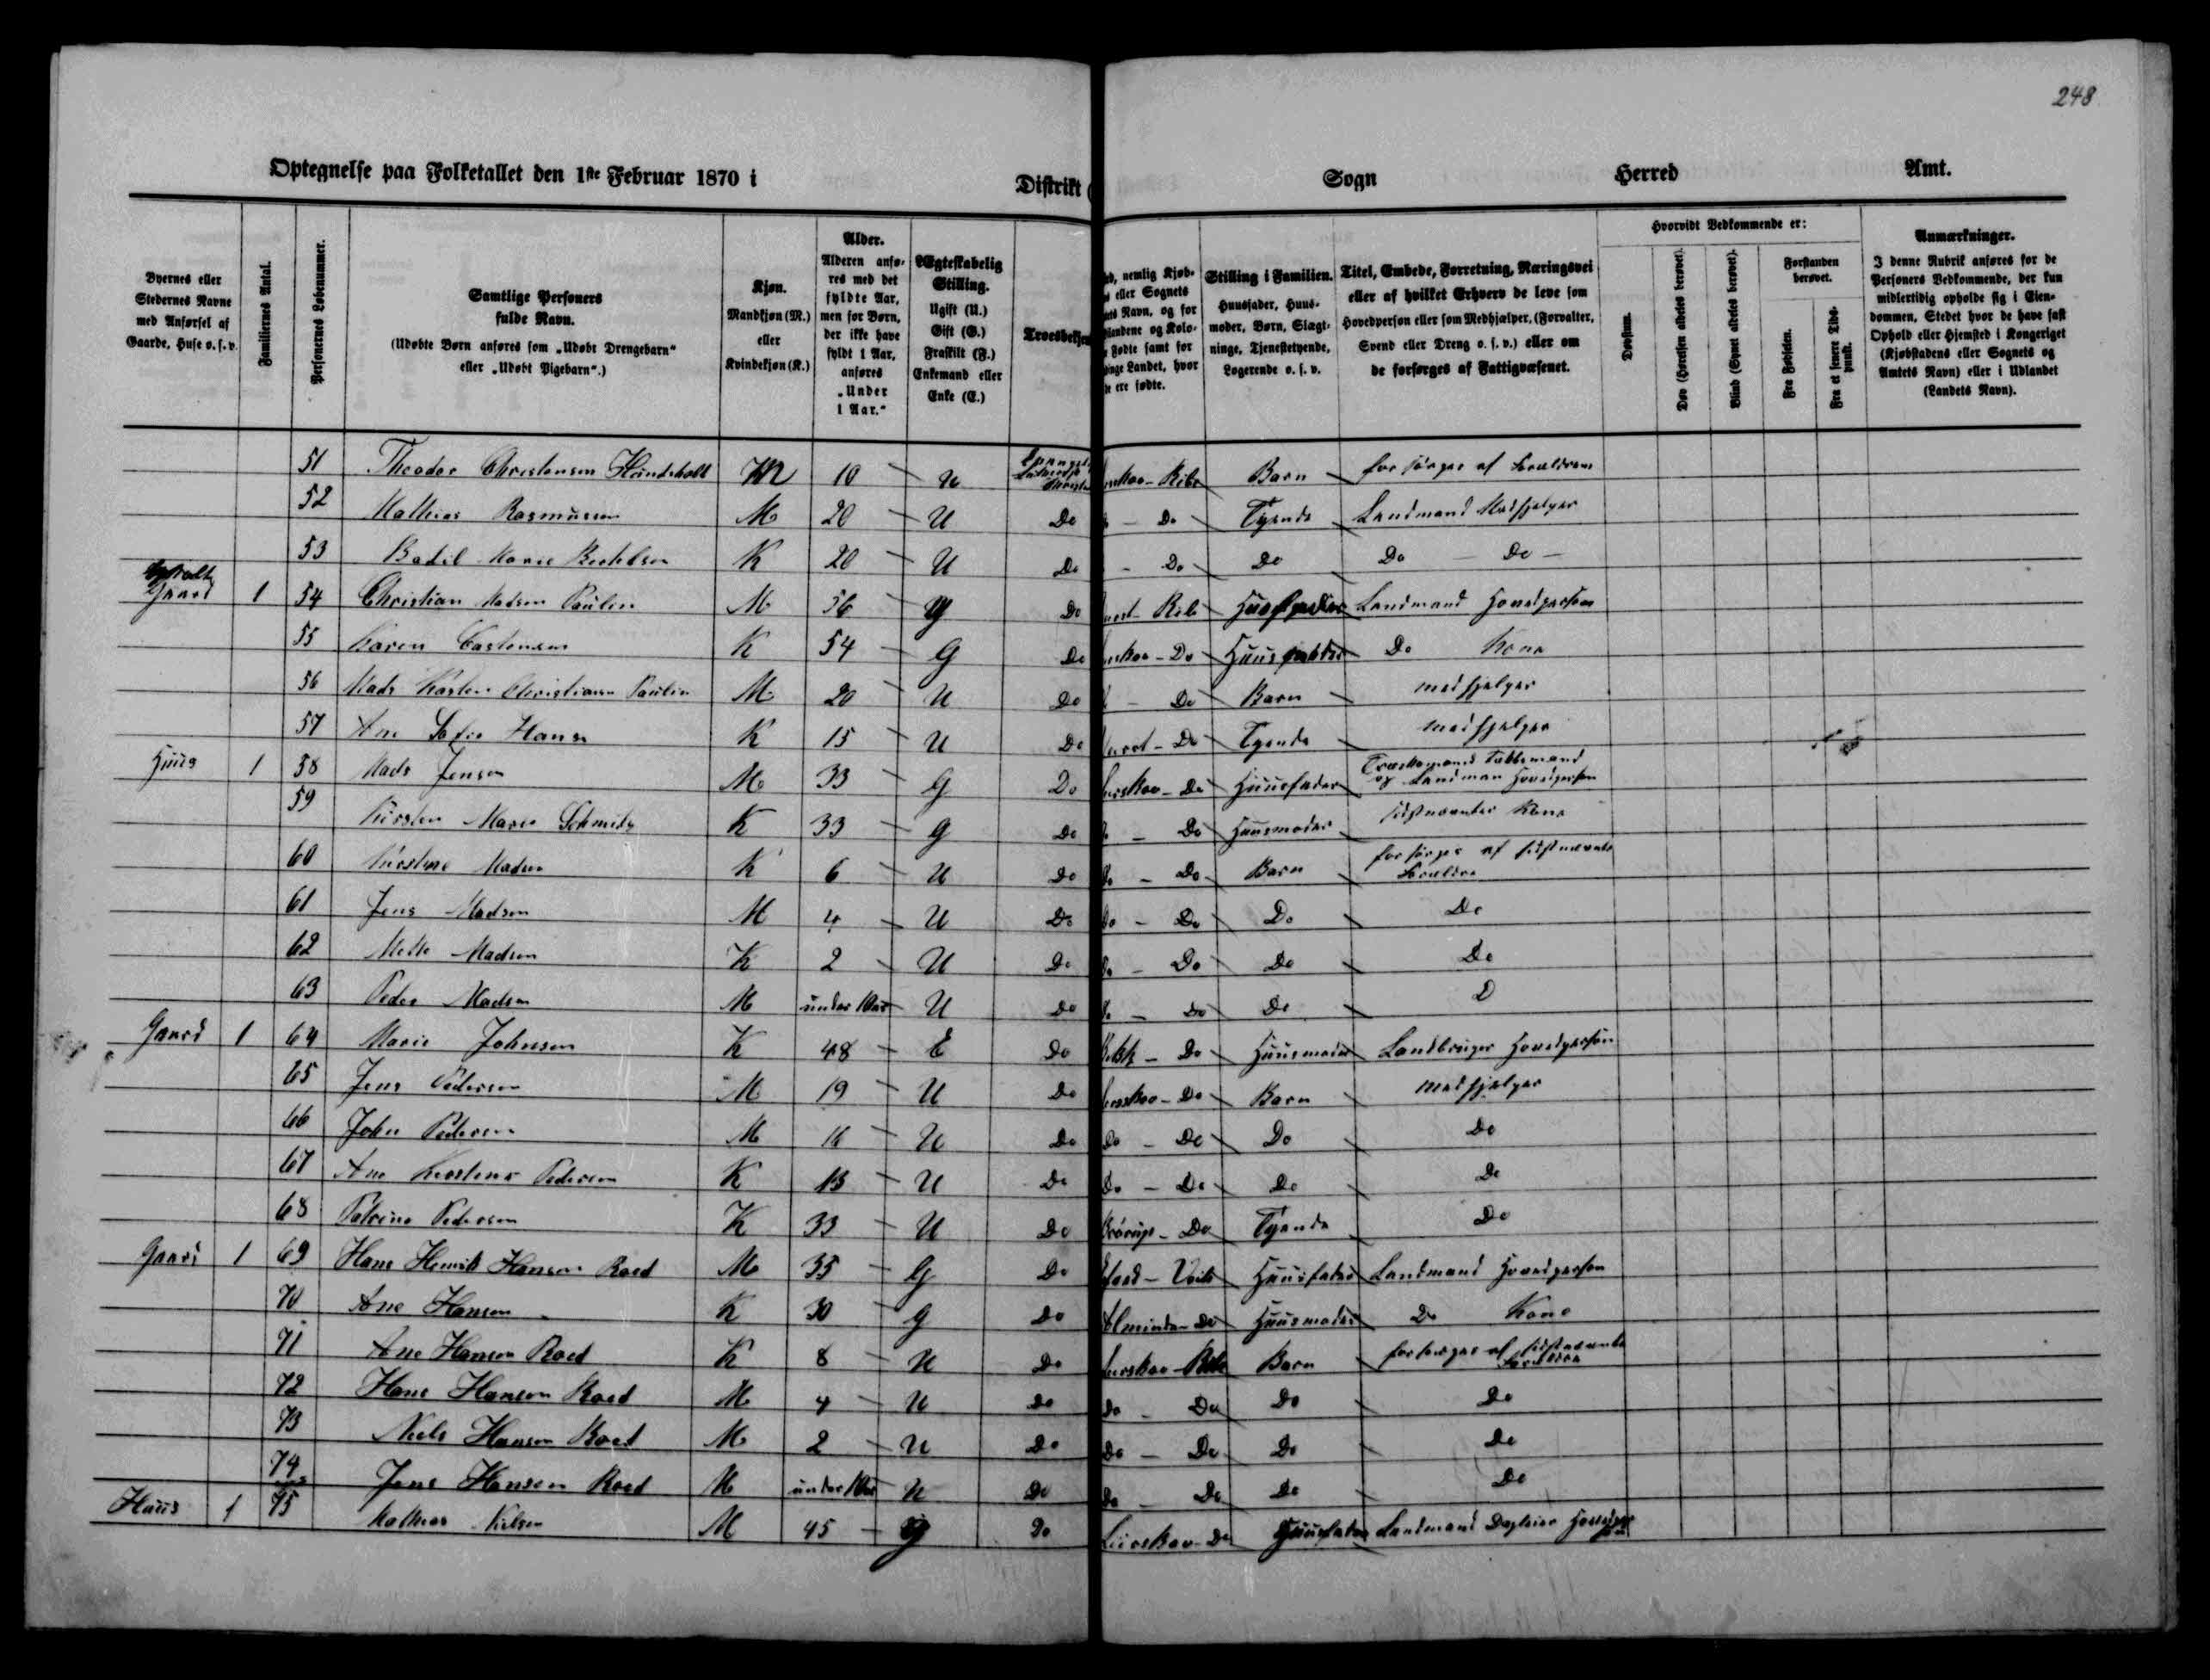 248
Optegnelse paa Folketallet den 1ste Februar 1870 i Distrikt ( Sogn Herred Amt.
Byernes eller Stedernes Navne med Anførsel af Gaarde, Huse o. s. v.
Familiernes Antal.
Personernes Løbenummer.
Samtlige Personers fulde Navn.
(Udøbte Børn anføres som „Udøbt Drengebarn“ eller „Udøbt Pigebarn“.)
Kjøn.
Mandkjøn (M.) eller Kvindekjøn (K.)
Alder.
Alderen anføres med det fyldte Aar, men for Børn, der ikke have fyldt 1 Aar, anføres „Under 1 Aar.“
Ægteskabelig Stilling.
Ugift (U.) Gift (G.) Fraskilt (F.) Enkemand eller Enke (E.)
Troesbekjen
ed, nemlig Kjøb-
s eller Sognets
ets Navn, og for
landene og Kolo-
Fødte samt for
inge Landet, hvor
de ere fødte.
Stilling i Familien.
Huusfader, Huusmoder, Børn, Slægtninge, Tjenestetyende, Logerende o. s. v.
Titel, Embede, Forretning, Næringsvei eller af hvilket Erhverv de leve som Hovedperson eller som Medhjælper, (Forvalter, Svend eller Dreng o. s. v.) eller om de forsørges af Fattigvæsenet.
Hvorvidt Vedkommende er:
Døvstum.
Døv (Hørelsen aldeles berøvet).
Blind (Synet aldeles berøvet).
Forstanden berøvet.
Fra Fødselen.
Fra et senere Tidspunkt.
Anmærkninger.
I denne Rubrik anføres for de Personers Vedkommende, der kun midlertidig opholde sig i Eiendommen, Stedet hvor de have fast Ophold eller Hjemsted i Kongeriget (Kjøbstadens eller Sognets og Amtets Navn) eller i Udlandet (Landets Navn).
51 Theodor Christensen M 10 - U - Ribe Barn forsørges af Forældrene
52 Mathias Rasmussen M 20 - U Do - Do Tyende Landmand Medhjelper
53 Bodil Marie K 20 - U Do - Do Do Do - Do -
Gaard 1 54 Christian Madsen Paulin M 56 - G Do - Ribe Huusfader Landmand Hovedperson
55 Karen Carstensen K 54 - G Do - Do Huusmoder Do Kone
56 Mads Karsten Christiansen Paulin M 20 - U Do - Do Barn medhjelper
57 Ane Sofie Hansen K 15 - U Do - Do Tyende medhjelper
Huus 1 58 Mads Jensen M 33 - G Do - Do Huusfader
og Landmand Hovedperson
59 Kirsten Marie Schmidt K 33 - G Do - Do Huusmoder sidstnævntes Kone
60 Kirstine Madsen K 6 - U Do Do - Do Barn forsørges af sidstnævnte
Forældre
61 Jens Madsen M 4 - U Do Do - Do Do Do
62 Mette Madsen K 2 - U Do Do - Do Do Do
63 Peder Madsen M under 1 Aar U Do - Do Do D
Gaard 1 64 Marie Johnsen K 48 - E Do - Do Huusmoder Landbruger Hovedperson
65 Jens Pedersen M 19 - U Do - Do Barn medhjelper
66 John Pedersen M 16 - U Do Do - Do Do Do
67 Ane Kirstine Pedersen K 13 - U Do Do - Do Do Do
68 Petrine Pedersen K 33 - U Do Brörup - Do Tyende Do
Gaard 1 69 Hans Henrik Hansen Roed M 35 - G Do - Veile Huusfader Landmand Hovedperson
70 Ane Hansen K 30 - G Do Alminde - Do Huusmoder Do Kone
71 Ane Hansen Roed K 8 - U Do - Ribe Barn forsørges af sidstnævnte
Forældre
72 Hans Hansen Roed M 4 - U Do Do - Do Do Do
73 Niels Hansen Roed M 2 - U Do Do - Do Do Do
74 Jens Hansen Roed M under 1 Aar U Do Do - Do Do Do
Huus 1 75 Mathias Nielsen M 45 - G Do Leirskov - Do Huusfader Landmand Hovedperson